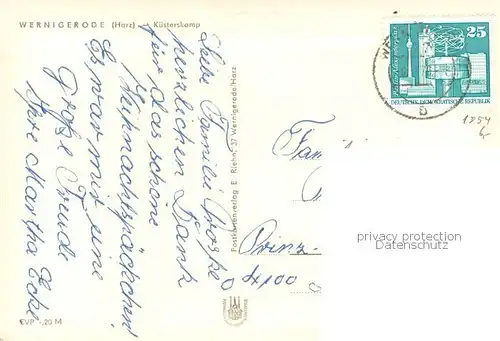 WERNIGERODE (Harz) — Küsterskamp
Liebe Familie
herzlichen Dank
für das schöne
Weihnachtspäckchen!
Es war mir eine
große Freude
Ihre Martha Ecke
EVP -,20 M
Postkartenverlag E. Riehn, 37 Wernigerode/Harz
25
DEUTSCHE DEMOKRATISCHE REPUBLIK
1854
Fam
Prinz-
privacy protection
Datenschutz